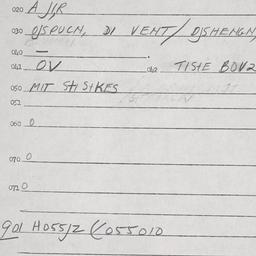 020 A J,R
030 OJSPUCH, DI VENT/ DJSHENGH,
040 —
041 OV 042 TISTE BOV2
050 MIT SH SIKES
052
060 0
070 0
072 0
901 H055J2 (055010